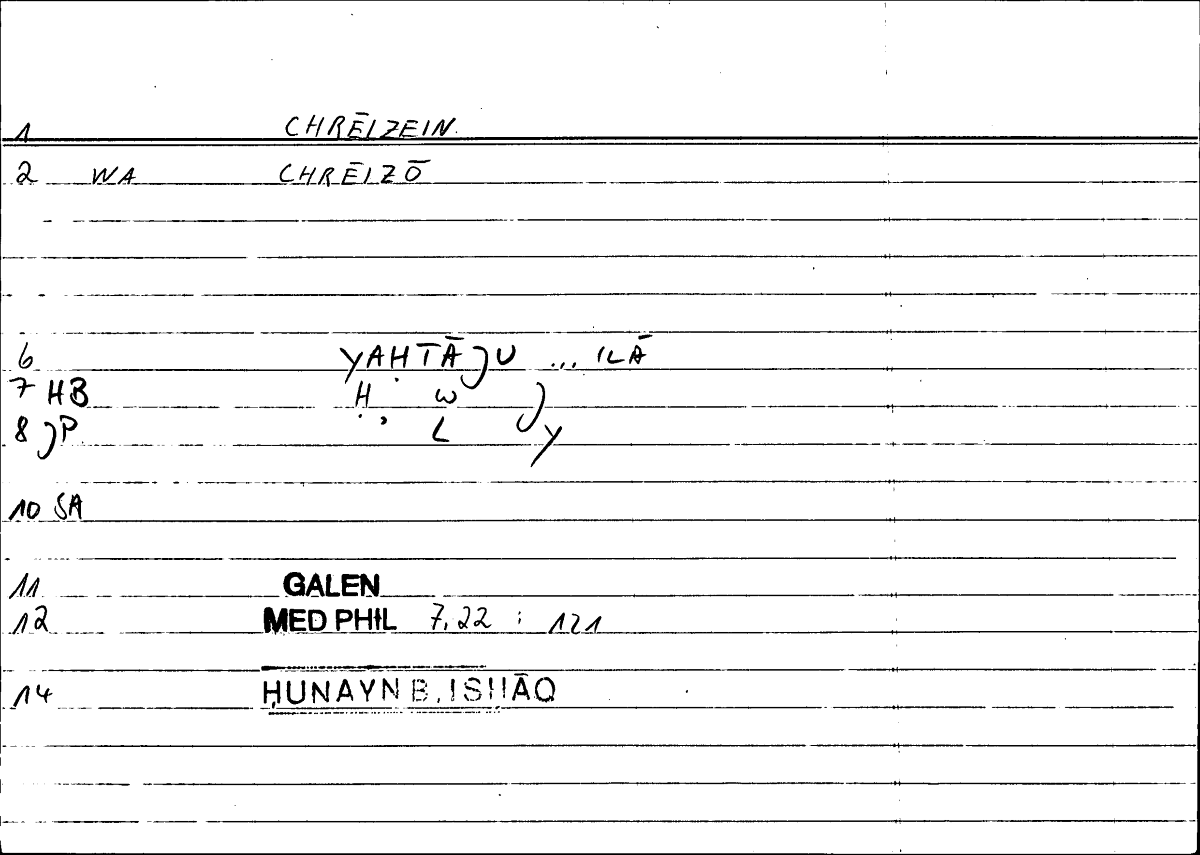 1 CHRĒIZEIN
2 WA CHRĒIZŌ
6 YAḤTĀJU ... ILĀ
7 HB Ḥ W J
8 JP . ʾ L Y
10 SA
11 GALEN
12 MED PHIL 7,22 : 121
14 ḤUNAYN B. ISḤĀQ